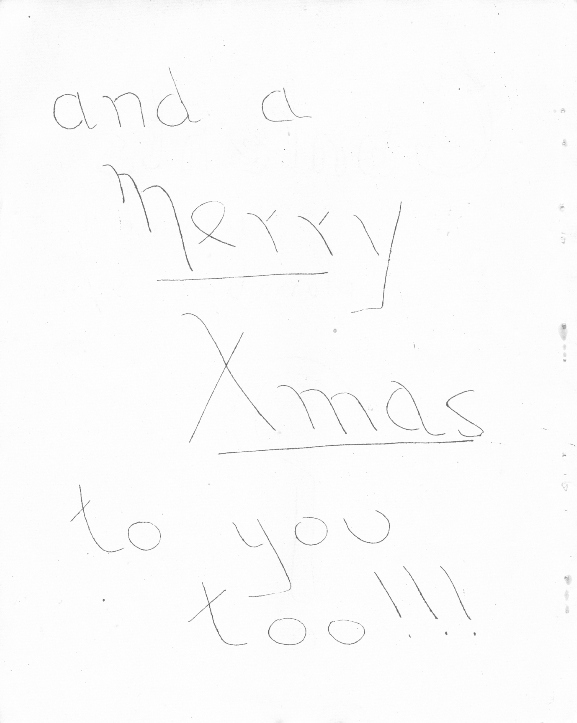 and a
Merry
Xmas
to you
too!!!